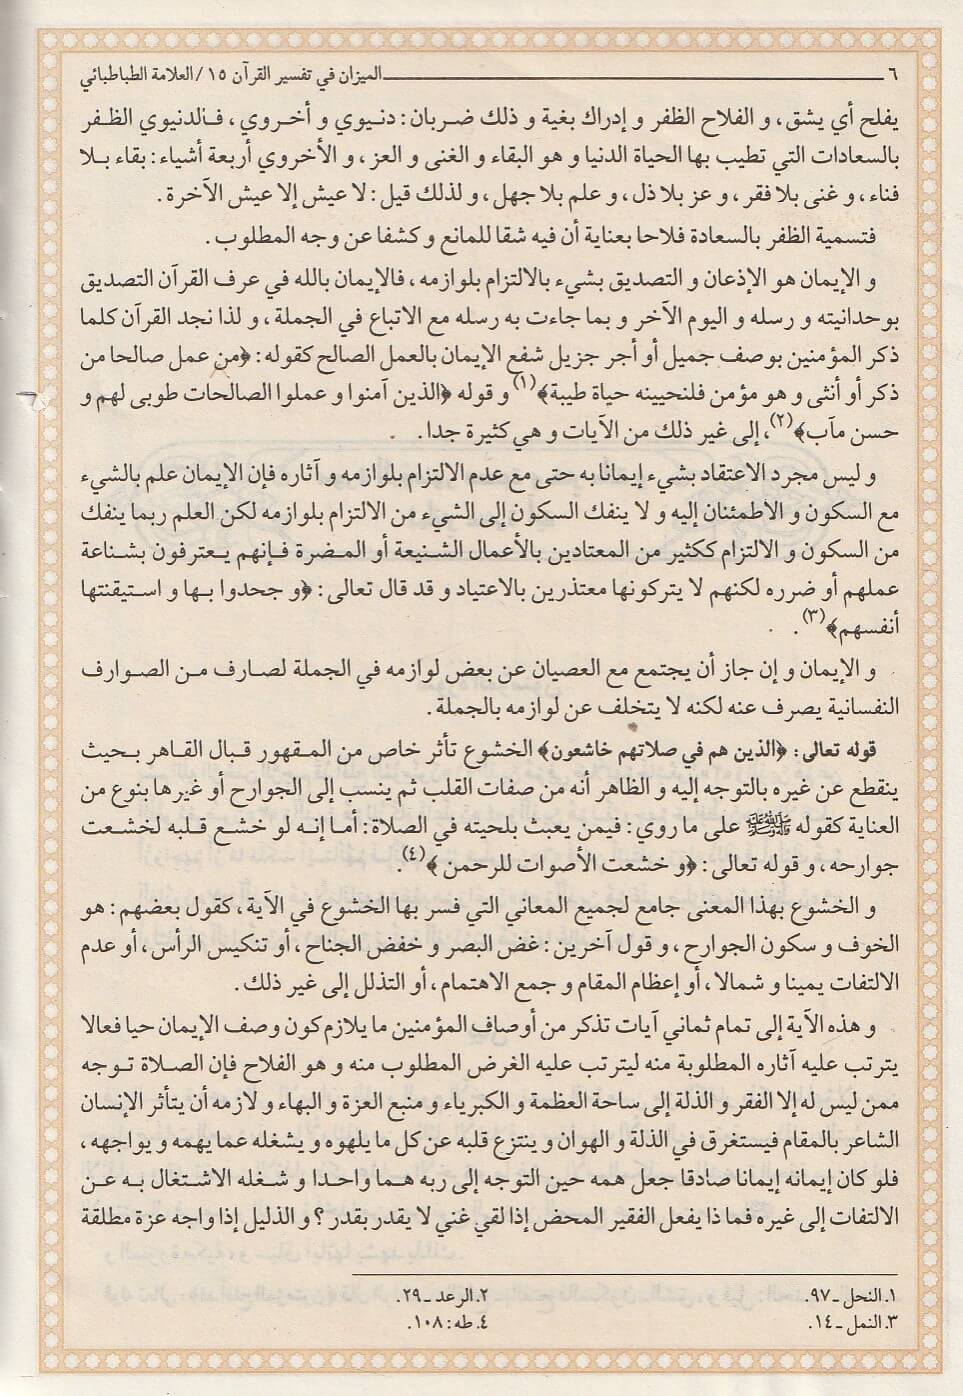 ٦ الميزان في تفسير القرآن ١٥ / العلامة الطباطبائي
يفلح أي يشق، و الفلاح الظفر و إدراك بغية و ذلك ضربان: دنيوي و أخروي، فالدنيوي الظفر
بالسعادات التي تطيب بها الحياة الدنيا و هو البقاء و الغنى و العز، و الأخروي أربعة أشياء: بقاء بلا
فناء، و غنى بلا فقر، و عز بلا ذل، و علم بلا جهل، و لذلك قيل: لا عيش إلا عيش الآخرة.
فتسمية الظفر بالسعادة فلاحا بعناية أن فيه شقا للمانع و كشفا عن وجه المطلوب.
و الإيمان هو الإذعان و التصديق بشيء بالالتزام بلوازمه، فالإيمان بالله في عرف القرآن التصديق
بوحدانيته و رسله و اليوم الآخر و بما جاءت به رسله مع الاتباع في الجملة، و لذا نجد القرآن كلما
ذكر المؤمنين بوصف جميل أو أجر جزيل شفع الإيمان بالعمل الصالح كقوله: ﴿من عمل صالحا من
ذكر أو أنثى و هو مؤمن فلنحيينه حياة طيبة﴾(١) و قوله ﴿الذين آمنوا و عملوا الصالحات طوبى لهم و
حسن مآب﴾(٢)، إلى غير ذلك من الآيات و هي كثيرة جدا.
و ليس مجرد الاعتقاد بشيء إيمانا به حتى مع عدم الالتزام بلوازمه و آثاره فإن الإيمان علم بالشيء
مع السكون و الاطمئنان إليه و لا ينفك السكون إلى الشيء من الالتزام بلوازمه لكن العلم ربما ينفك
من السكون و الالتزام ككثير من المعتادين بالأعمال الشنيعة أو المضرة فإنهم يعترفون بشناعة
عملهم أو ضرره لكنهم لا يتركونها معتذرين بالاعتياد و قد قال تعالى: ﴿و جحدوا بها و استيقنتها
أنفسهم﴾(٣).
و الإيمان و إن جاز أن يجتمع مع العصيان عن بعض لوازمه في الجملة لصارف من الصوارف
النفسانية يصرف عنه لكنه لا يتخلف عن لوازمه بالجملة.
قوله تعالى: ﴿الذين هم في صلاتهم خاشعون﴾ الخشوع تأثر خاص من المقهور قبال القاهر بحيث
ينقطع عن غيره بالتوجه إليه و الظاهر أنه من صفات القلب ثم ينسب إلى الجوارح أو غيرها بنوع من
العناية كقوله ﷺ على ما روي: فيمن يعبث بلحيته في الصلاة: أما إنه لو خشع قلبه لخشعت
جوارحه، و قوله تعالى: ﴿و خشعت الأصوات للرحمن﴾(٤).
و الخشوع بهذا المعنى جامع لجميع المعاني التي فسر بها الخشوع في الآية، كقول بعضهم: هو
الخوف و سكون الجوارح، و قول آخرين: غض البصر و خفض الجناح، أو تنكيس الرأس، أو عدم
الالتفات يمينا و شمالا، أو إعظام المقام و جمع الاهتمام، أو التذلل إلى غير ذلك.
و هذه الآية إلى تمام ثماني آيات تذكر من أوصاف المؤمنين ما يلازم كون وصف الإيمان حيا فعالا
يترتب عليه آثاره المطلوبة منه ليترتب عليه الغرض المطلوب منه و هو الفلاح فإن الصلاة توجه
ممن ليس له إلا الفقر و الذلة إلى ساحة العظمة و الكبرياء و منبع العزة و البهاء و لازمه أن يتأثر الإنسان
الشاعر بالمقام فيستغرق في الذلة و الهوان و ينتزع قلبه عن كل ما يلهوه و يشغله عما يهمه و يواجهه،
فلو كان إيمانه إيمانا صادقا جعل همه حين التوجه إلى ربه هما واحدا و شغله الاشتغال به عن
الالتفات إلى غيره فما ذا يفعل الفقير المحض إذا لقي غني لا يقدر بقدر؟ و الذليل إذا واجه عزة مطلقة
١. النحل ـ ٩٧. ٢. الرعد ـ ٢٩.
٣. النمل ـ ١٤. ٤. طه: ١٠٨.